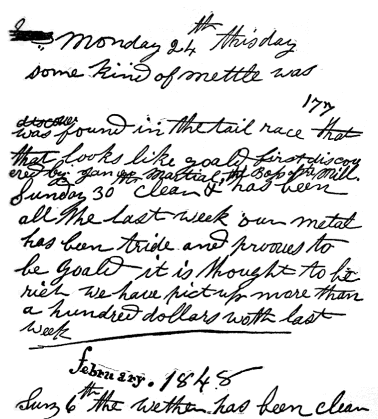 Monday 24th this day
some kind of mettle was
177
discover
was found in the tail race that
that looks like goald first discov
ered by James Martial, the Boss of the Mill.
Sunday 30th clear & has been
all the last week our metal
has been tride and prooves to
be goald it is thought to be
rich we have pict up more than
a hundred dollars woth last
week
February. 1848
Sun 6th the wether has been clear